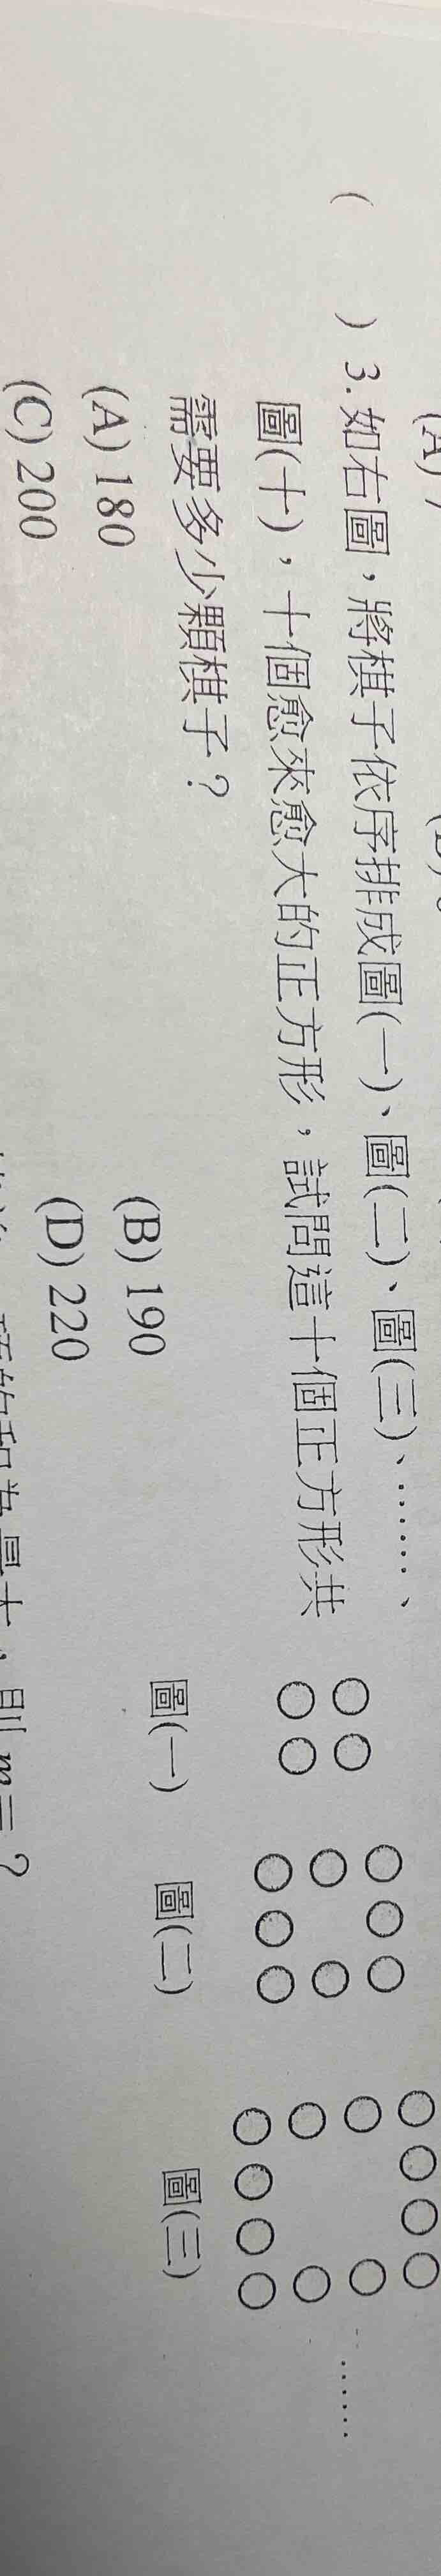 (　　) 3. 如右圖，將棋子依序排成圖(一)、圖(二)、圖(三)、……、
圖(十)，十個愈來愈大的正方形，試問這十個正方形共
需要多少顆棋子？
(A) 180
(B) 190
(C) 200
(D) 220
圖(一)
圖(二)
圖(三)
……
的和為最大，則 m = ?